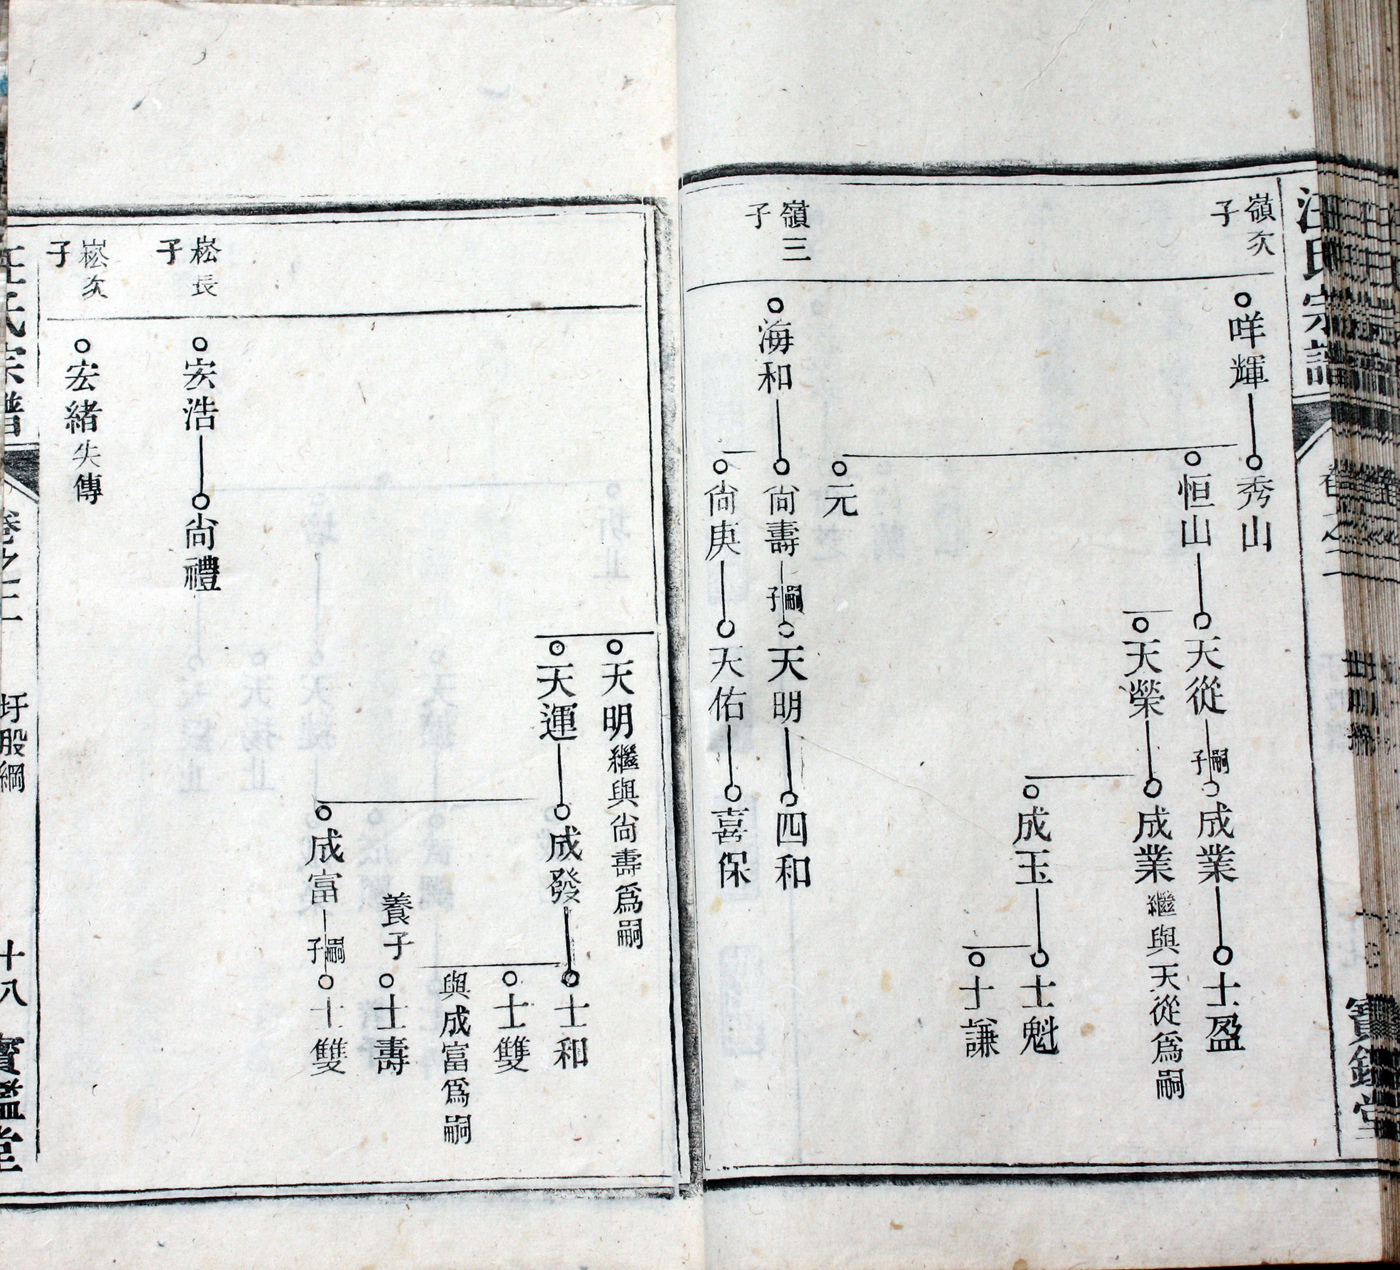 汪氏宗譜
卷之二
寶鑑堂
嶺次
子
咩輝
秀山
恒山
元
天從
天榮
嗣子
成業
成業繼與天從爲嗣
成玉
士盈
士魁
士謙
嶺三
子
海和
尙壽
尙庚
嗣子
天明
天佑
四和
喜保
天明繼與尙壽爲嗣
天運
成發
成富
士和
士雙
與成富爲嗣
養子
士壽
嗣子
士雙
崧長
子
宏浩
尙禮
崧次
子
宏緒失傳
汪氏宗譜
卷之二
圩股綱
十八
寶鑑堂